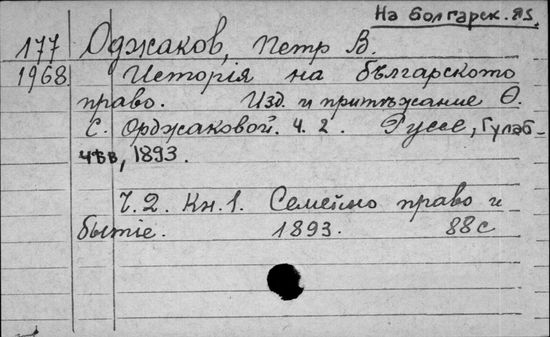 На болгарск. яз.
177 Оджаков, Петр В.
1968 Исторія на българското
право. Изд. и притѣжание Ѳ.
С. Орджаковой. ч. 2. Руссе, Гулаб-
чѣв, 1893.
Ч. 2. Кн. 1. Семейно право и
бытіе. 1893. 88 с